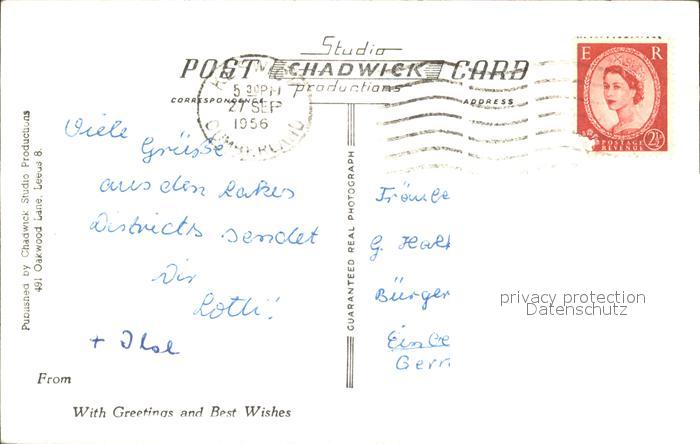 Studio
POST CHADWICK CARD
productions
CORRESPONDENCE ADDRESS
5 30PM
27 SEP
1956
CUMBERLAND
E R
POSTAGE
REVENUE
2½
Viele
Grüße
aus den Lakes
Districts sendet
Dir
Lotti!
+ Ilse
From
With Greetings and Best Wishes
Published by Chadwick Studio Productions
491 Oakwood Lane, Leeds 8.
GUARANTEED REAL PHOTOGRAPH
G.
Bürger
privacy protection
Datenschutz